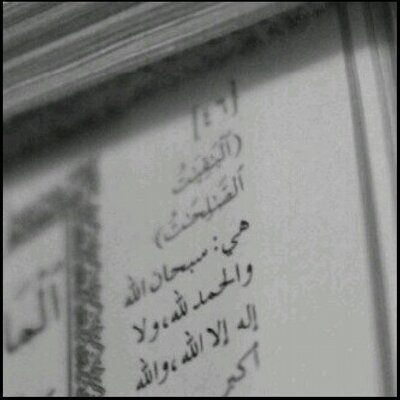 [٤٦]
(ٱلْبَٰقِيَٰتُ
ٱلصَّٰلِحَٰتُ)
هي: سبحان الله
والحمد لله، ولا
إله إلا الله، والله
أكبر